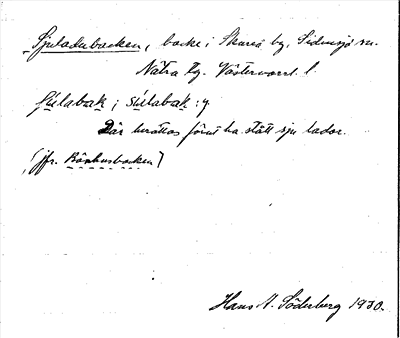 Sjuladubacken, backe i Skureå by, Sidensjö sn.
Nätra tg. Västernorrl. l.
súlabak :y
Där berättas förut ha stått sju lador.
(jfr. Bönhusbacken)
Hans H. Söderberg 1930.